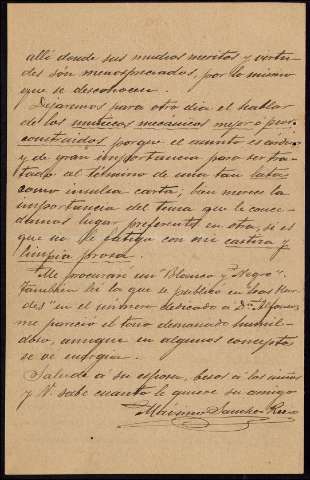 allí donde sus muchos meritos y virtu-
des són menospreciados, por lo mismo
que se desconocen.
Dejaremos para otro dia el hablar
de los muñecos mecánicos mejor ó peor
construidos porque el asunto es árduo
y de gran importancia para ser tra-
tado al término de una tan latosa
como insulsa carta; bien merece la
importancia del tema que le conce-
damos lugar preferente en otra, si es
que no le fatigo con mi castiza y
limpia prosa.
Me procuraré un "Blanco y Negro",
tambien leí lo que se publicó en
des" en el número dedicado á Dn. Alfonso,
me pareció el tono demasiado humil-
doso, aunque en algunos conceptos
se ve energía.
Salude á su esposa, besos á los niños
y V. sabe cuanto le quiere su amigo
Máximo Sanchez Reco